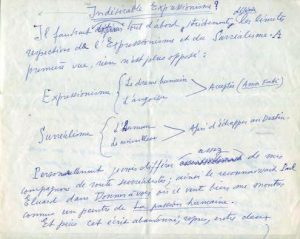 Indésirable Expressionisme ?
Il faudrait tout d'abord, évidemment, les limites
respectives de l'Expressionisme et du Surréalisme. A
première vue, rien n'est plus opposé :
Expressionisme { Le drame humain
L'angoisse > Acceptés
Surréalisme { L'Humour
Le merveilleux > Afin d'échapper au destin.
Personnellement, je me différencie assez de mes
compagnons de route surréalistes, ainsi le reconnaissait Paul
Eluard dans Donner à voir où il veut bien me montrer
comme un peintre de La passion humaine.
Et puis cet écrit abandonné, repris, entre deux